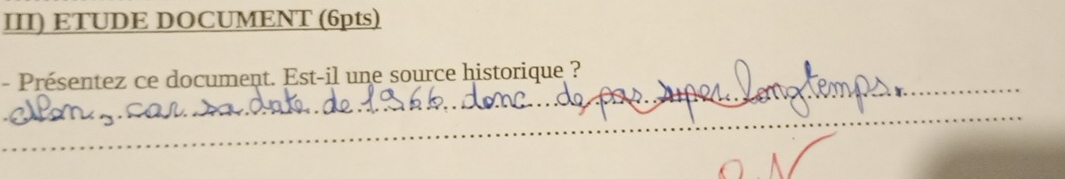 III) ETUDE DOCUMENT (6pts)
- Présentez ce document. Est-il une source historique ?
Non, car sa date de 1966 donc de pas super longtemps.